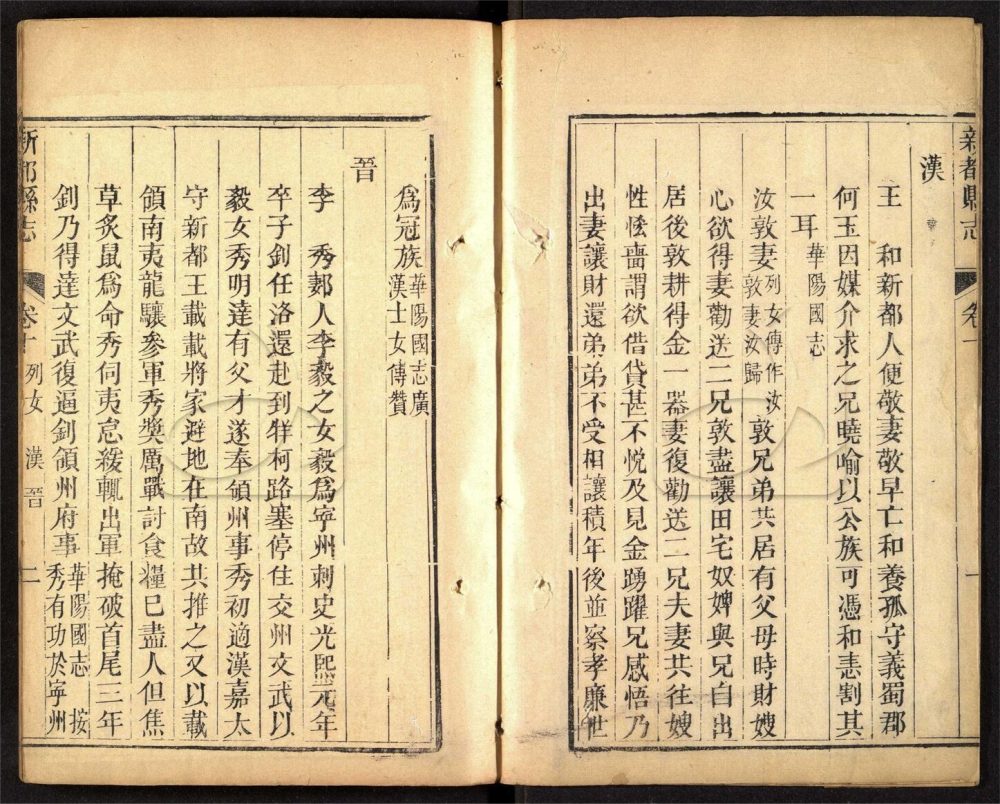 新都縣志 卷 一
漢
王 和新都人便敬妻敬早亡和養孤守義蜀郡
何玉因媒介求之兄曉喻以公族可憑和恚割其
一耳 華陽國志
汝敦妻 列女傳作汝敦妻汝歸 敦兄弟共居有父母時財嫂
心欲得妻勸送二兄敦盡讓田宅奴婢與兄自出
居後敦耕得金一器妻復勸送二兄夫妻共往嫂
性恡嗇謂欲借貸甚不悦及見金踴躍兄感悟乃
出妻讓財還弟弟不受相讓積年後並察孝廉世
爲冠族 華陽國志廣漢士女傳贊
晉
李 秀郪人李毅之女毅爲寧州刺史光熙元年
卒子釗任洛還赴到牂柯路塞停住交州文武以
毅女秀明達有父才遂奉領州事秀初適漢嘉太
守新都王載載將家避地在南故共推之又以載
領南夷龍驤參軍秀奬厲戰討食糧已盡人但焦
草炙鼠爲命秀伺夷怠緩輒出軍掩破首尾三年
釗乃得達文武復逼釗領州府事 華陽國志 按秀有功於寧州
新都縣志 卷十 列女 漢 晉 二